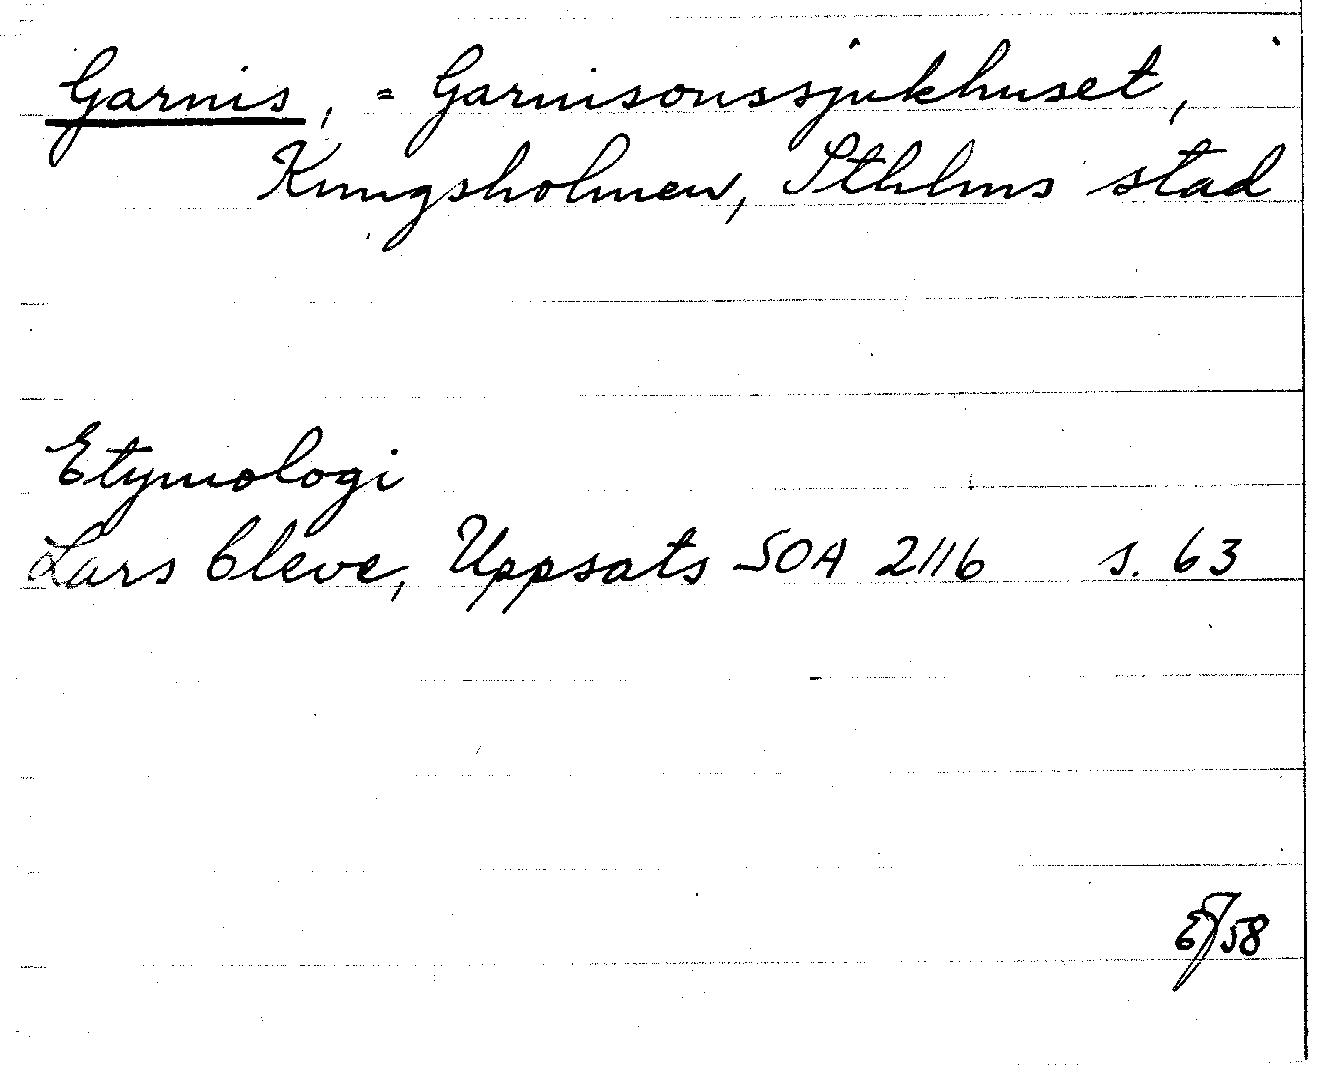 Garnis, = Garnisonssjukhuset,
Kungsholmen, Sthlms stad
Etymologi
Lars Cleve, Uppsats SOA 2116 s. 63
58